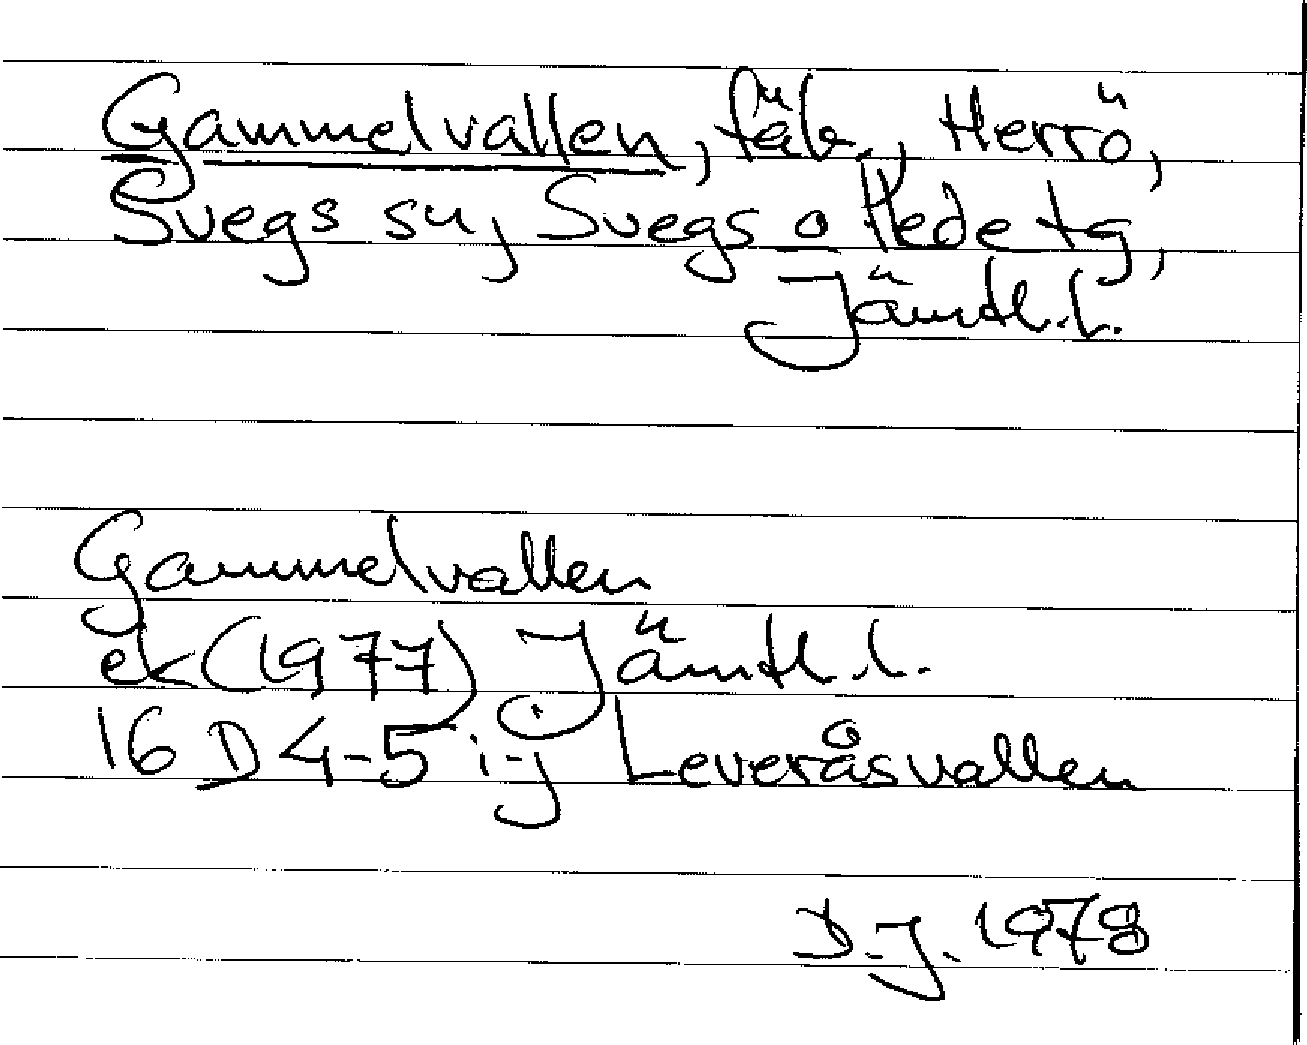 Gammelvallen, fäb., Herrö,
Svegs sn, Svegs o Hede tg,
Jämtl.l.
Gammelvallen
ek (1977) Jämtl.l.
16 D 4-5 i-j Leveråsvallen
D.J. 1978